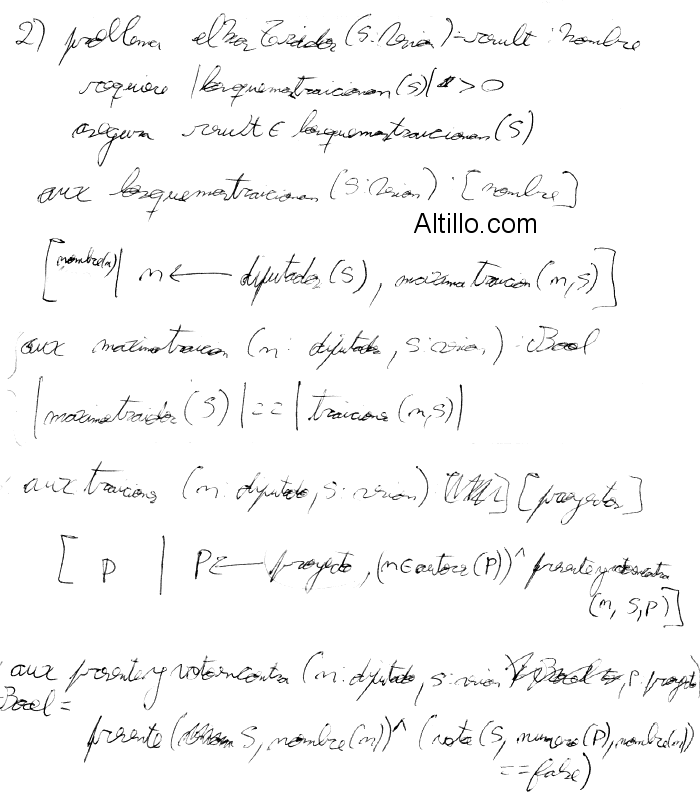 2) problema elMasTraidor (S: Sesion) = result : Nombre
requiere |losquemastraicionan (S)| > 0
asegura result ∈ losquemastraicionan (S)
aux losquemastraicionan (S: Sesion) : [nombre]
Altillo.com
[nombre(m) | m ← diputados (S), maximatraicion (m, S)]
aux maximatraicion (m: diputado, S: sesion) : Bool
|maximatraidor (S)| == |traiciones (m,S)|
aux traiciones (m: diputado, S: sesion) [proyectos]
[P | P ← proyecto, (m ∈ autores (P)) ^ presenteyvotoencontra
(m, S, P)]
aux presenteyvotoencontra (m: diputado, S: sesion, P: proyecto)
Bool =
presente (S, nombre (m)) ^ (voto (S, numero (P), nombre (m))
== false)